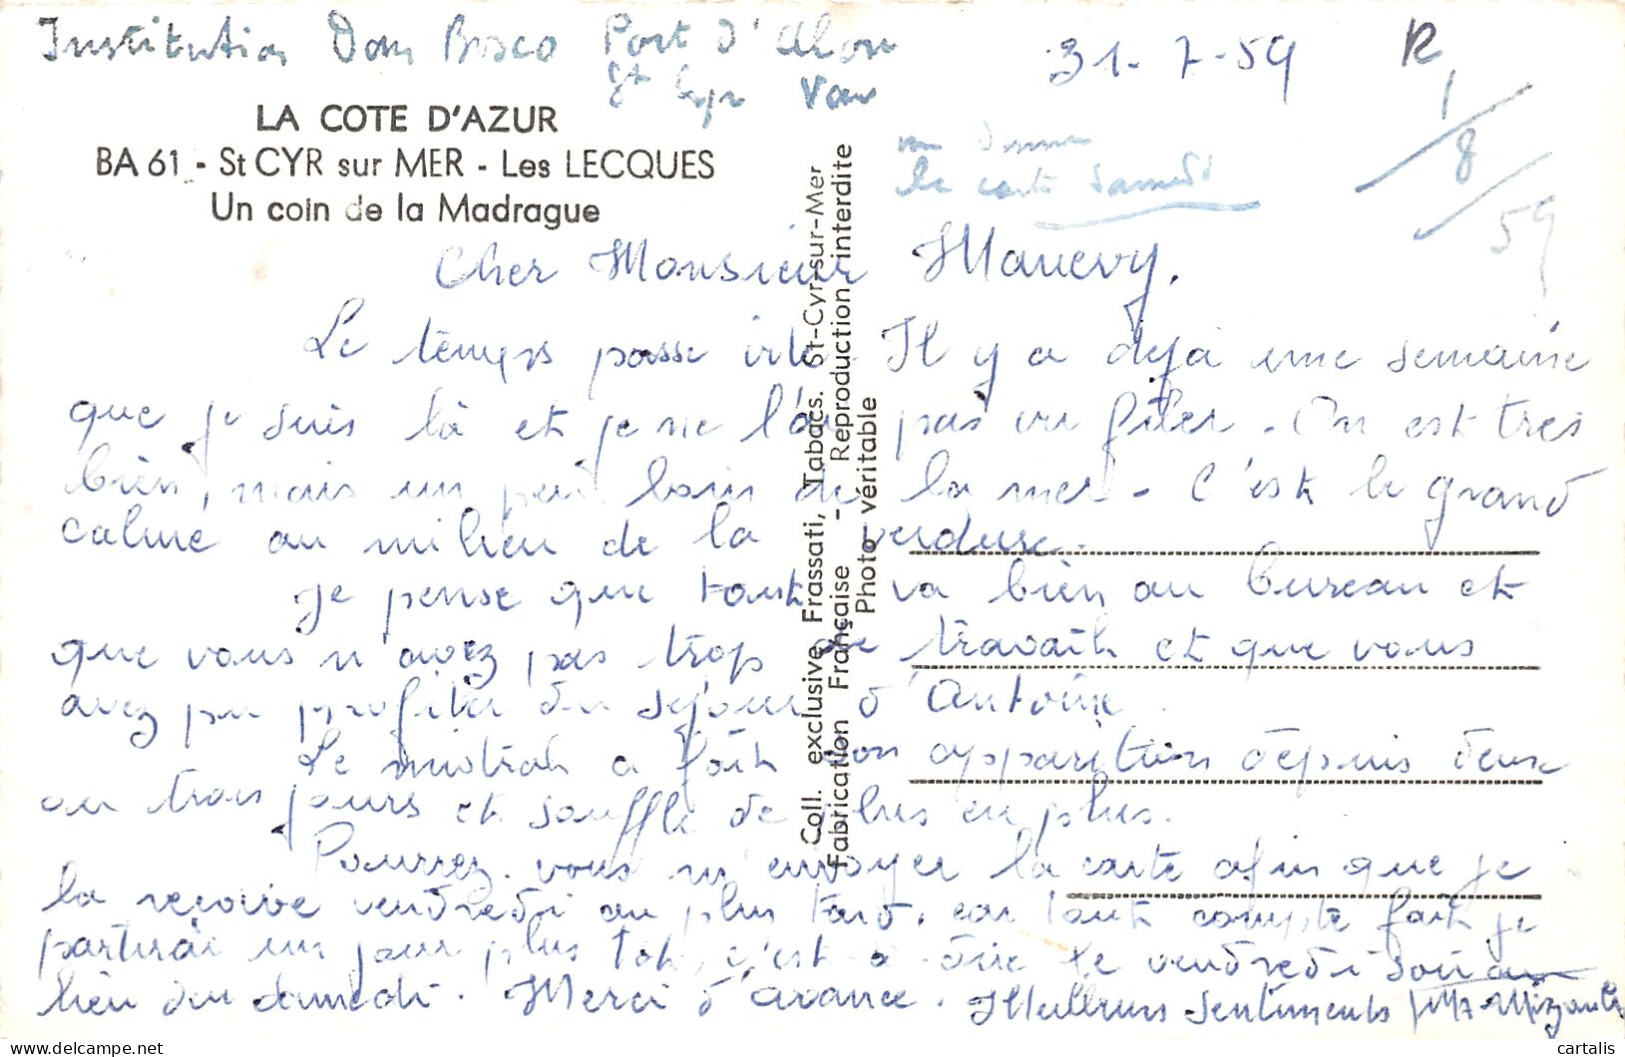 Institution Dom Bosco Port d'Alon
St Cyr Var
31-7-59
R
1/8/59
LA COTE D'AZUR
BA 61 - St CYR sur MER - Les LECQUES
Un coin de la Madrague
la carte samedi
Cher Monsieur Manevy,
Le temps passe vite. Il y a déjà une semaine
que je suis là et je ne l'ai pas vu filer. On est très
bien, mais un peu loin de la mer - C'est le grand
calme au milieu de la verdure.
Je pense que tout va bien au bureau et
que vous n'avez pas trop de travail et que vous
avez pu profiter du séjour d'Antoine.
Le mistral a fait son apparition depuis deux
ou trois jours et souffle de plus en plus.
Pourrez-vous m'envoyer la carte afin que je
la reçoive vendredi au plus tard, car tout compte fait je
partirai un jour plus tôt, c'est à dire le vendredi soir au
lieu du samedi. Merci d'avance. Meilleurs sentiments
Coll. exclusive Frassati, Tabacs. St-Cyr-sur-Mer
Fabrication Française - Reproduction interdite
Photo véritable
cartalis